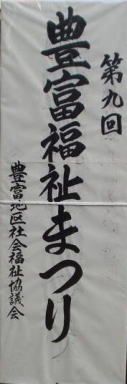 第九回
豊富福祉まつり
豊富地区社会福祉協議会